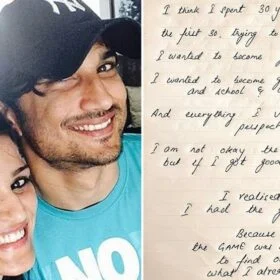 NY
NO
I think I spent 30 y
the first 30, trying to
I wanted to become
I wanted to become g
and school &
And everything I
perspec
I am not okay the
but if I got good
I realised
I had the
Because
the GAME was
to find
what I alrea